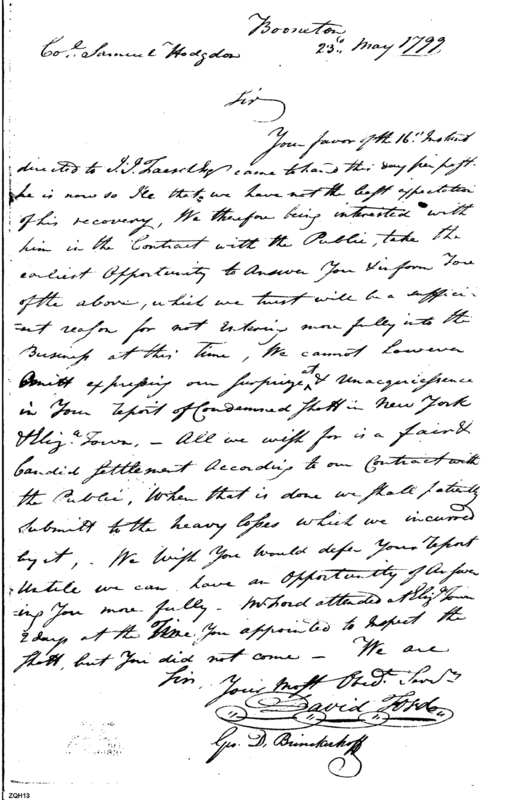 Booneton
23d. May 1799
Col. Samuel Hodgdon
Sir
Your favor of the 16th Instant
directed to J. J. Faesch Esqr came to hand this day per post.
he is now so Ile that we have not the least expectation
of his recovery, We therefore being interested with
him in the Contract with the Public, take the
earliest Opportunity to Answer You & inform You
of the above, which we trust will be a suffici
=ent reason for not Entering more fully into the
Business at this Time, We cannot however
Omitt expressing our surprize at & Unacquiessence
in Your report of Condemned Shott in New York
& Eliza. Town. — All we wish for is a fair &
Candid Settlement According to our Contract with
the Public, When that is done we shall patiently
submitt to the heavy losses which we incurred
by it, . We wish You would defer Your report
Untile we can have an Opportunity of Answer
=ing You more fully — Mr. Ford attended at Eliza. Town
2 days at the Time You appointed to Inspect the
Shott, but You did not come — We are
Sir, Your most Obedt. Servts
David Ford
Geo. D. Brinckerhoff
ZQH13